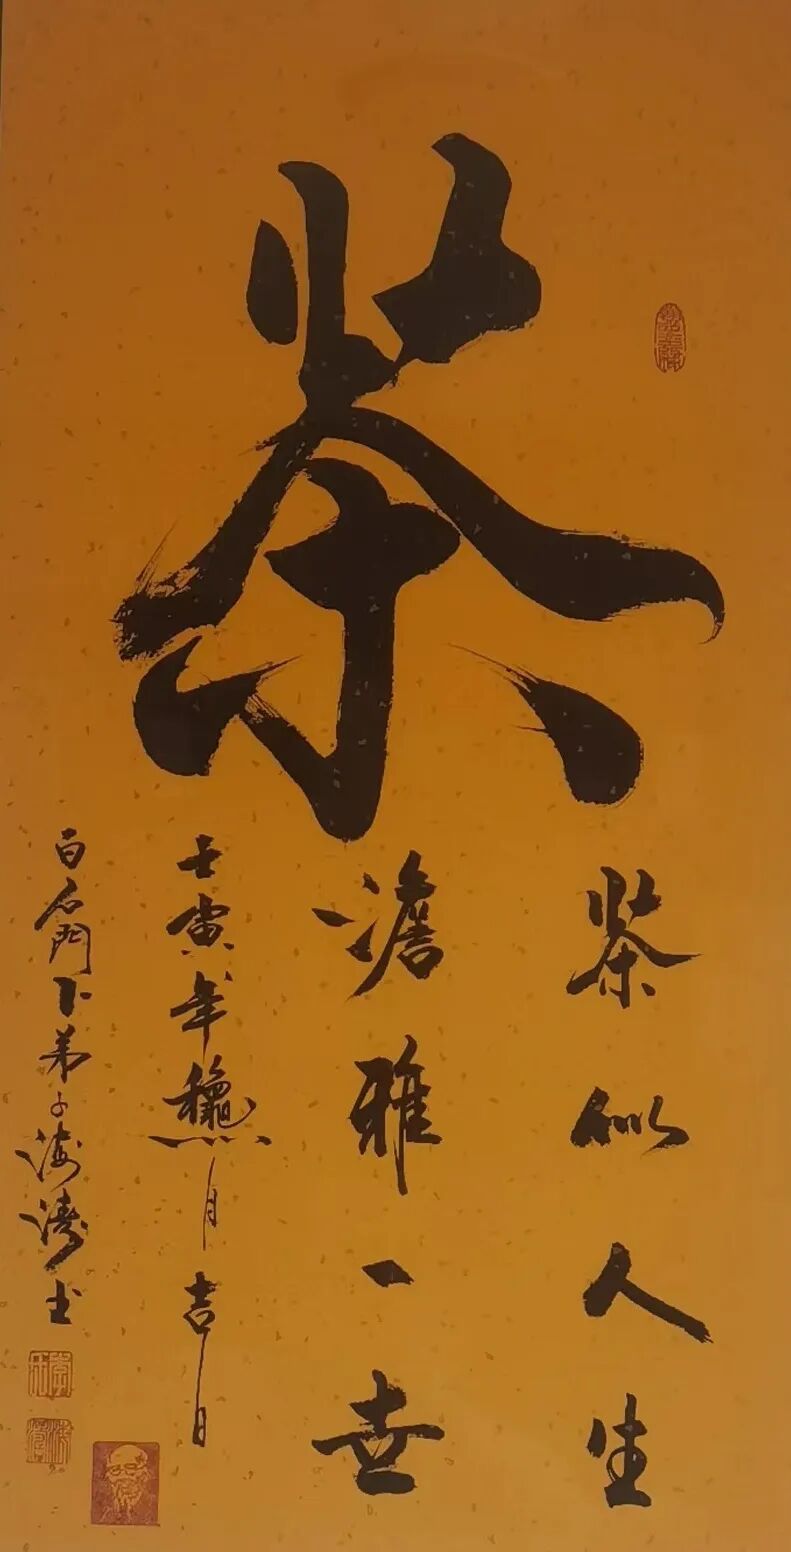 茶
茶似人生
澹雅一世
壬寅年龝月吉日
白石門下弟子海濤书